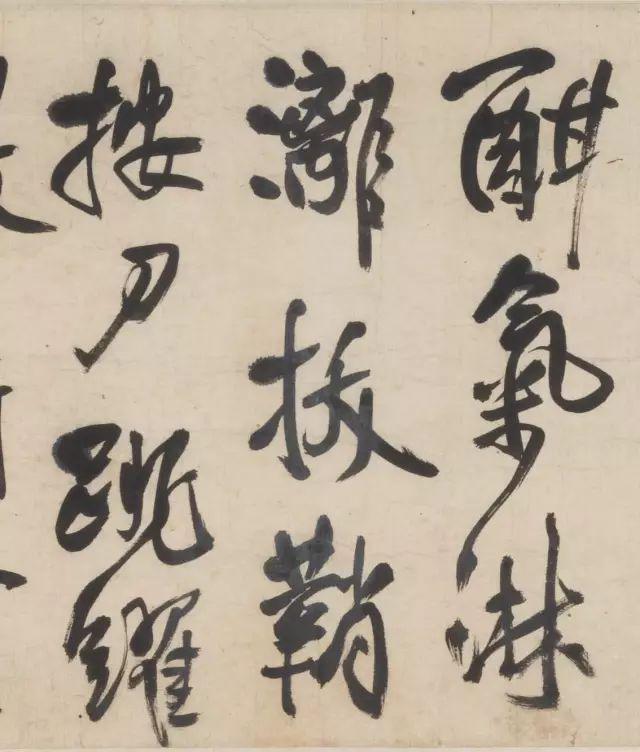 酣氣淋
灕拔鞘
按刀跳躍